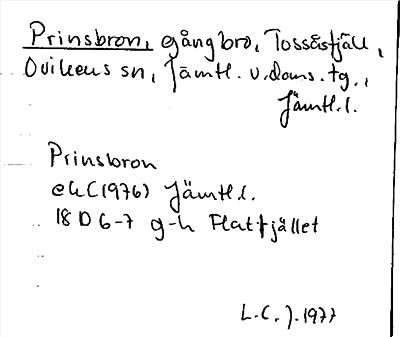 Prinsbron, gångbro, Tossåsfjäll,
Ovikens sn, Jämtl. v. doms. tg.,
Jämtl.l.
Prinsbron
ek (1976) Jämtl.l.
18 D 6-7 g-h Flatfjället
L.C.J. 1977